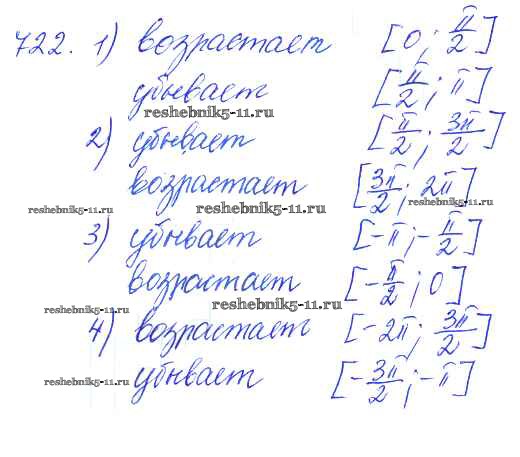 722. 1) возрастает [0; π/2]
убывает [π/2; π]
reshebnik5-11.ru
2) убывает [π/2; 3π/2]
возрастает [3π/2; 2π]
reshebnik5-11.ru reshebnik5-11.ru reshebnik5-11.ru
3) убывает [-π; -π/2]
возрастает [-π/2; 0]
reshebnik5-11.ru reshebnik5-11.ru
4) возрастает [-2π; 3π/2]
убывает [-3π/2; -π]
reshebnik5-11.ru